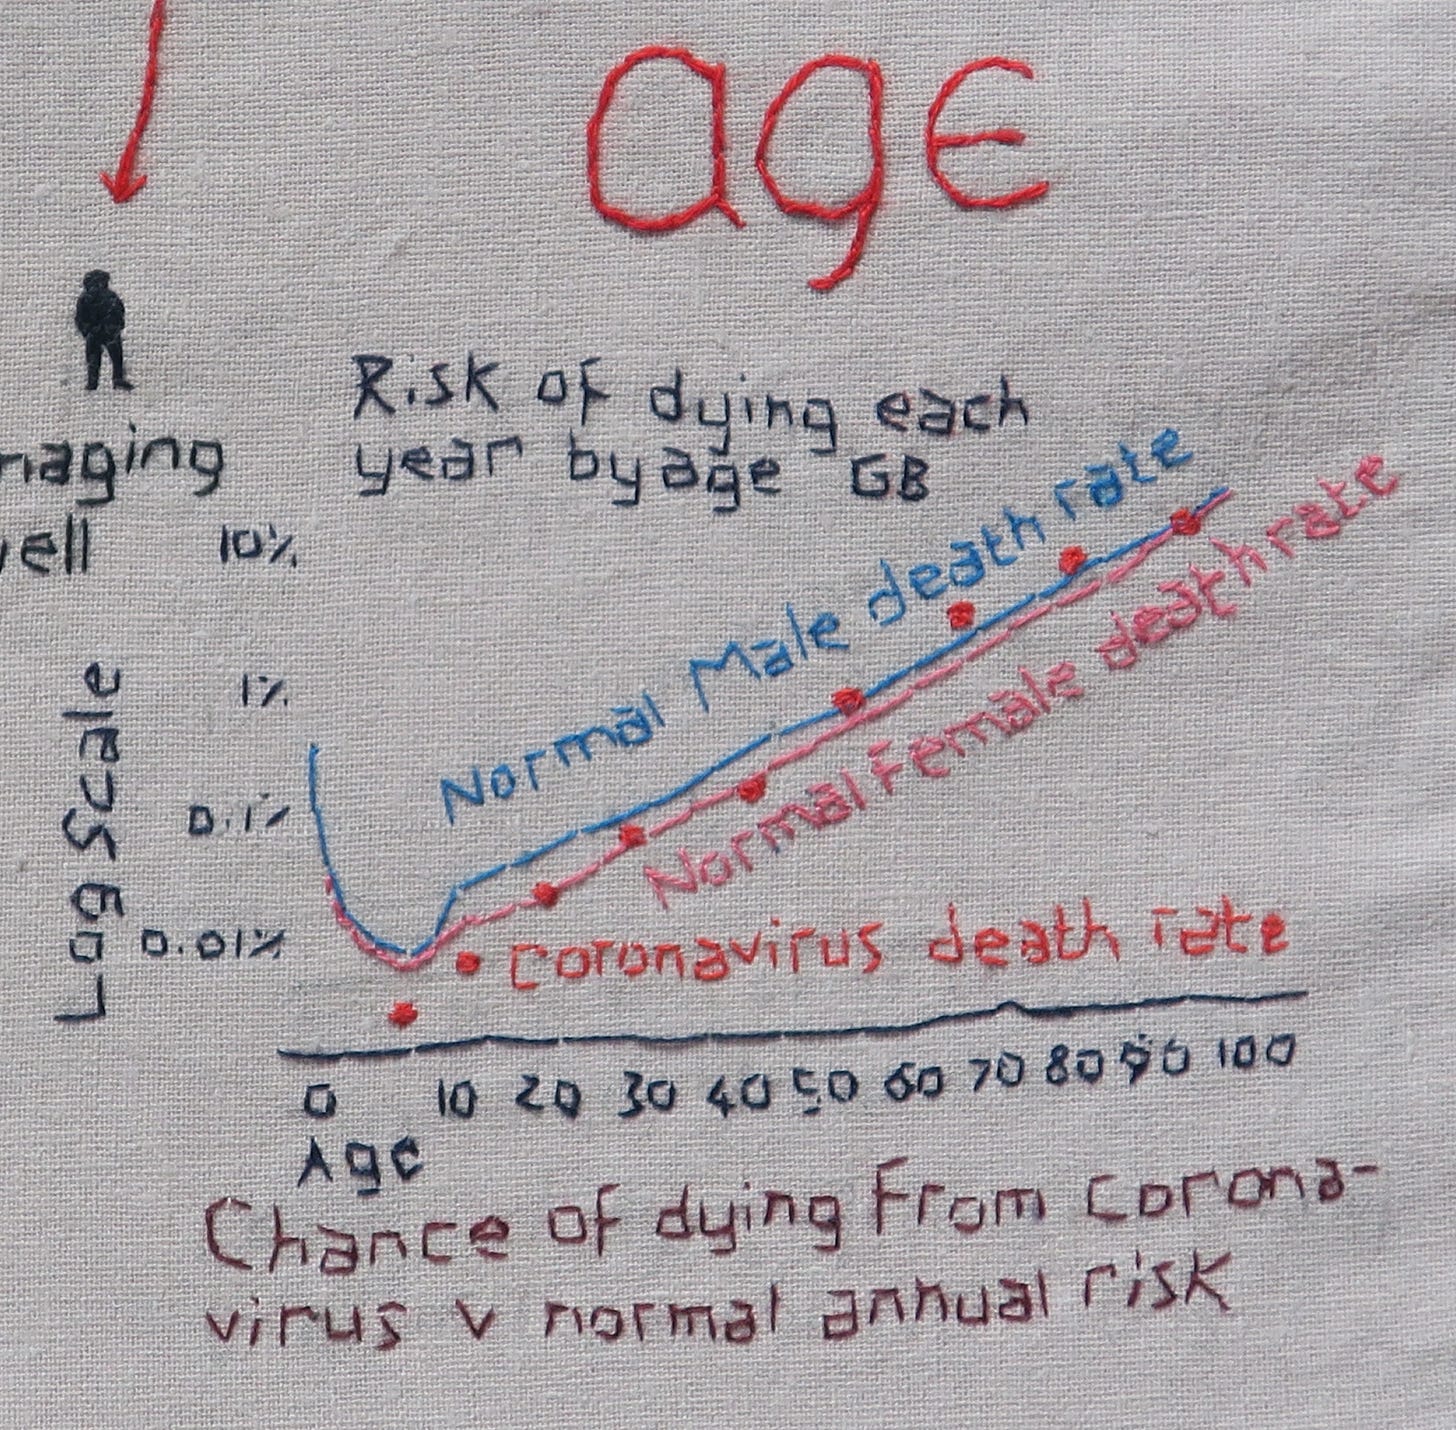 age
naging
well
Risk of dying each
year by age GB
10%
1%
0.1%
0.01%
Log Scale
Normal Male death rate
Normal Female death rate
Coronavirus death rate
0 10 20 30 40 50 60 70 80 90 100
Age
Chance of dying From corona-
virus v normal annual risk